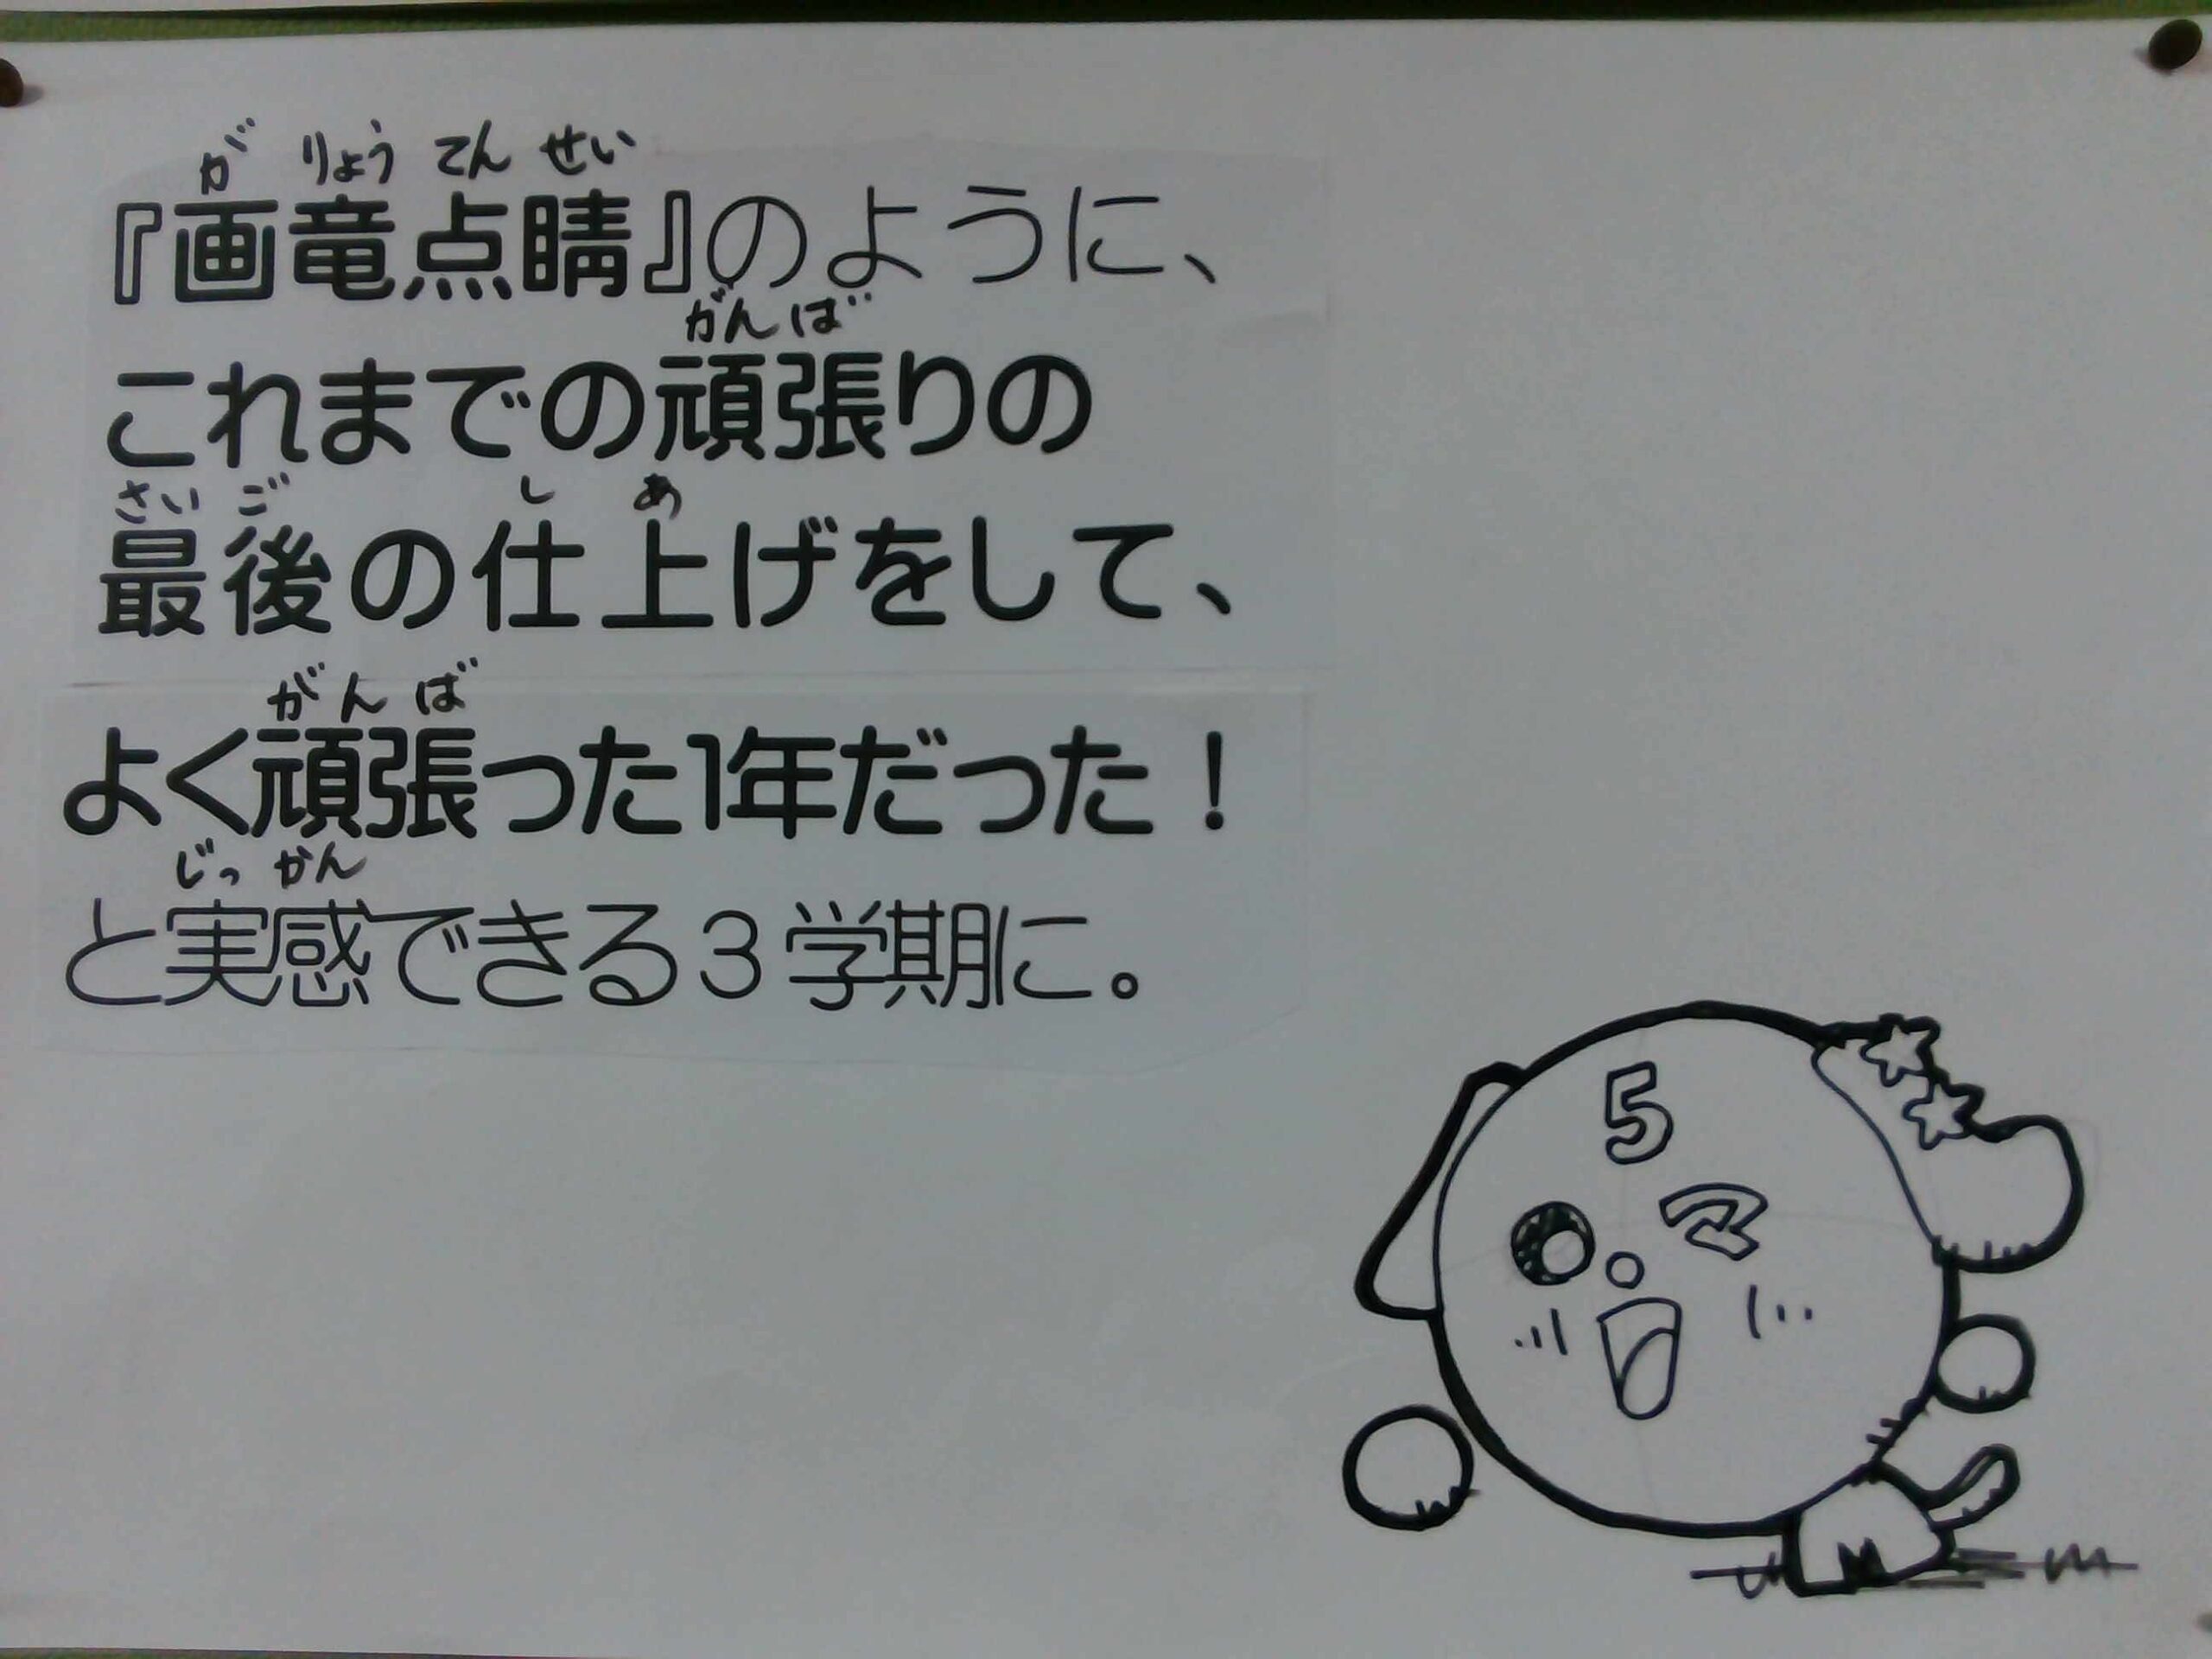 が りょう てん せい
『画竜点睛』のように、
がんば
これまでの頑張りの
さい ご し あ
最後の仕上げをして、
がんば
よく頑張った1年だった！
じっ かん
と実感できる3学期に。
5